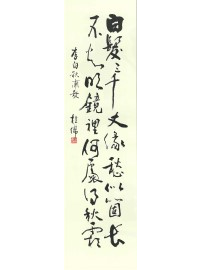 白髮三千丈緣愁似箇長
不知明鏡裡何處得秋霜
李白秋浦歌